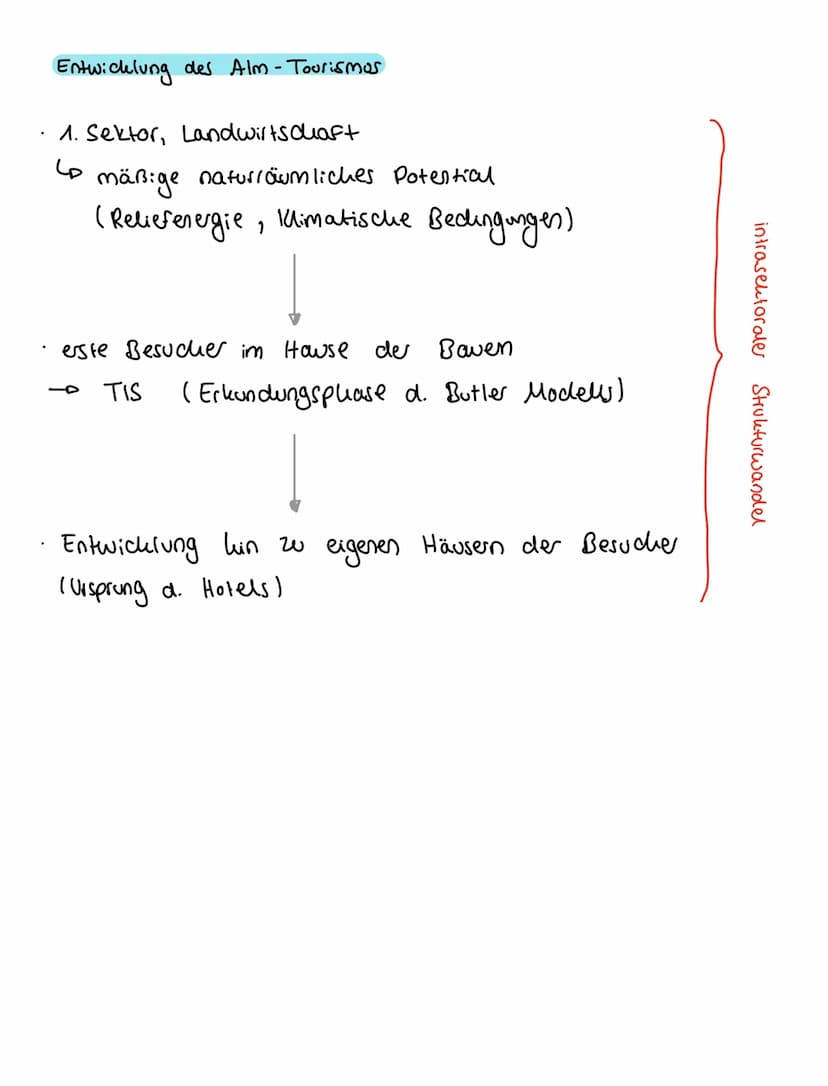 Entwicklung des Alm-Tourismus
· 1. Sektor, Landwirtschaft
↳ mäßige naturräumliches Potential
(Reliefenergie, klimatische Bedingungen)
· erste Besucher im Hause der Bauen
→ TIS (Erkundungsphase d. Butler Modells)
· Entwicklung hin zu eigenen Häusern der Besucher
(Ursprung d. Hotels)
intrasektoraler Strukturwandel